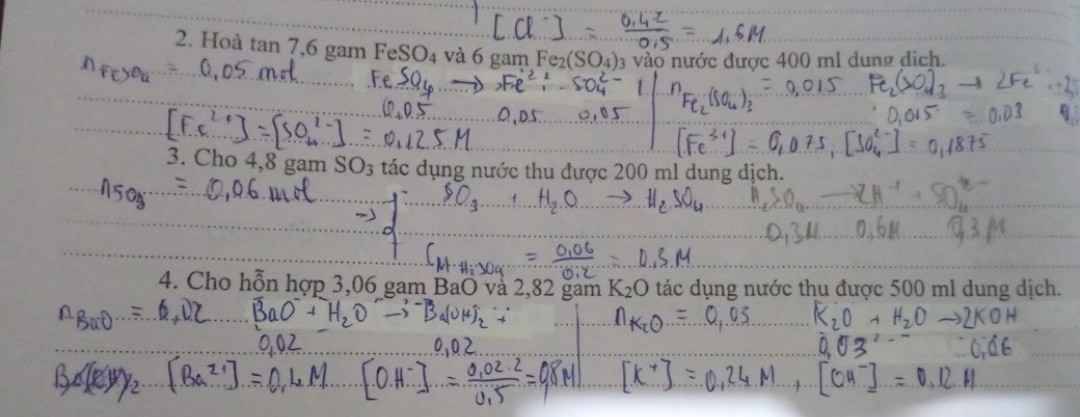 [Cl⁻] = 0,42/0,5 = 1,5M
2. Hoà tan 7,6 gam FeSO₄ và 6 gam Fe₂(SO₄)₃ vào nước được 400 ml dung dịch.
n FeSO₄ = 0,05 mol FeSO₄ → Fe²⁺ + SO₄²⁻ | n Fe₂(SO₄)₃ = 0,015 Fe₂(SO₄)₃ → 2Fe
0,05 0,05 0,05 0,015 = 0,03
[Fe²⁺] = [SO₄²⁻] = 0,125M [Fe³⁺] = 0,075, [SO₄²⁻] = 0,1875
3. Cho 4,8 gam SO₃ tác dụng nước thu được 200 ml dung dịch.
n SO₃ = 0,06 mol → SO₃ + H₂O → H₂SO₄ H₂SO₄ → 2H⁺ + SO₄²⁻
0,3M 0,6M 0,3M
C M H₂SO₄ = 0,06/0,2 = 0,3M
4. Cho hỗn hợp 3,06 gam BaO và 2,82 gam K₂O tác dụng nước thu được 500 ml dung dịch.
n BaO = 0,02 BaO + H₂O → Ba(OH)₂ n K₂O = 0,03 K₂O + H₂O → 2KOH
0,02 0,02 0,03 0,06
[Ba²⁺] = 0,4M [OH⁻] = 0,02.2/0,5 = 0,8M [K⁺] = 0,24M, [OH⁻] = 0,12M